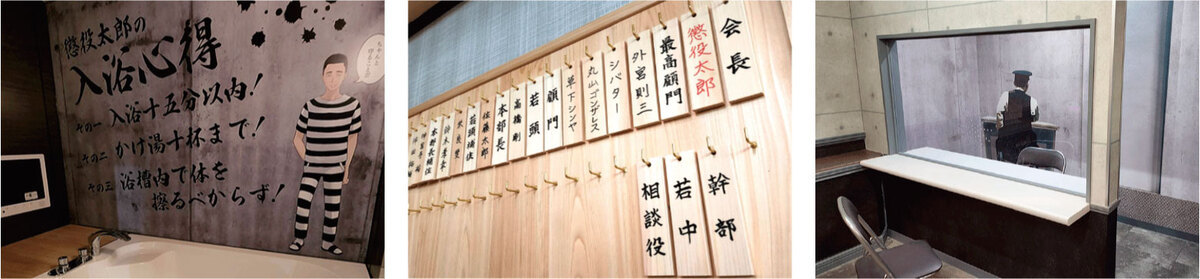 懲役太郎の
入浴心得
その一 入浴十五分以内！
その二 かけ湯十杯まで！
その三 浴槽内で体を
擦るべからず！
ちゃんと
会長
懲役太郎
最高顧門
外宮則三
シバター
丸山ゴンザレス
草下シンヤ
顧門
若頭
高橋剛
本部長
佐藤太郎
若頭補佐
本部長補佐
幹部
若中
相談役